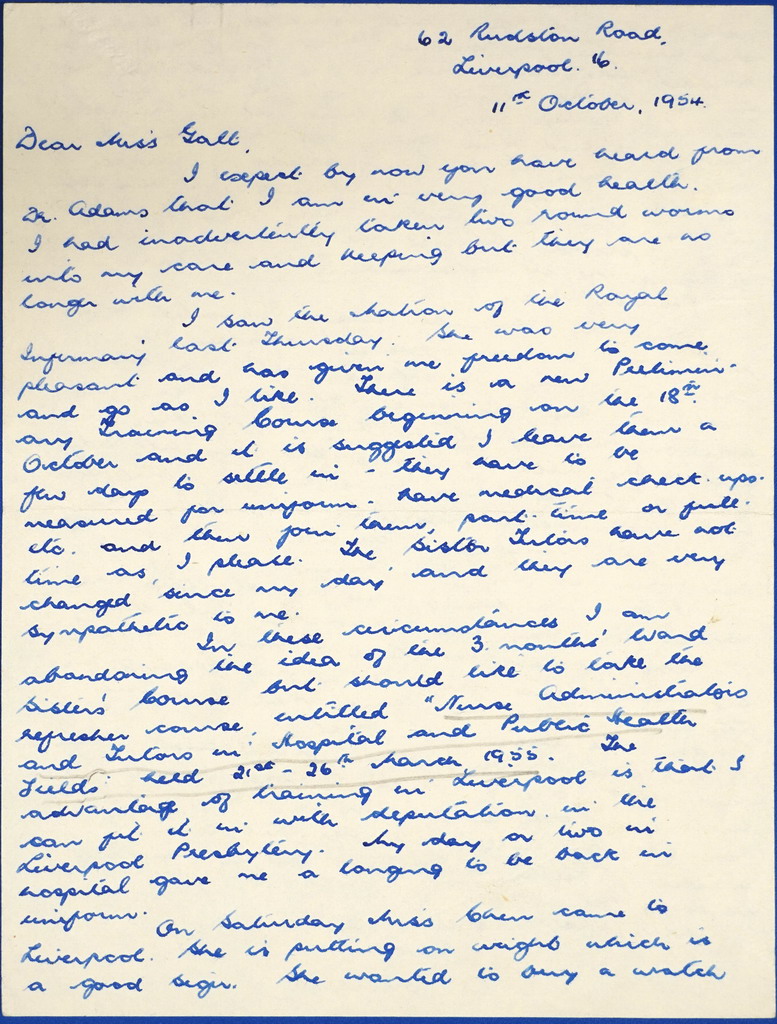 62 Rudston Road,
Liverpool. 16.
11th October, 1954.
Dear Miss Galt,
I expect by now you have heard from
Dr. Adams that I am in very good health.
I had inadvertently taken two round worms
into my care and keeping but they are no
longer with me.
I saw the Matron of the Royal
Infirmary last Thursday. She was very
pleasant and has given me freedom to come
and go as I like. There is a new Prelimin-
ary Training Course beginning on the 18th
October and it is suggested I leave them a
few days to settle in - they have to be
measured for uniform, have medical check-ups.
etc. and then join them, part-time or full-
time as I please. The Sister Tutors have not
changed 'since my day' and they are very
sympathetic to me.
In these circumstances I am
abandoning the idea of the 3 months' Ward
Sisters' Course but should like to take the
refresher course, entitled "Nurse Administrators
and Tutors in Hospital and Public Health
Fields" held 21st - 26th March 1955. The
advantage of training in Liverpool is that I
can fit it in with deputation in the
Liverpool Presbytery. My day or two in
hospital gave me a longing to be back in
uniform.
On Saturday Miss Chen came to
Liverpool. She is putting on weight which is
a good sign. She wanted to buy a watch